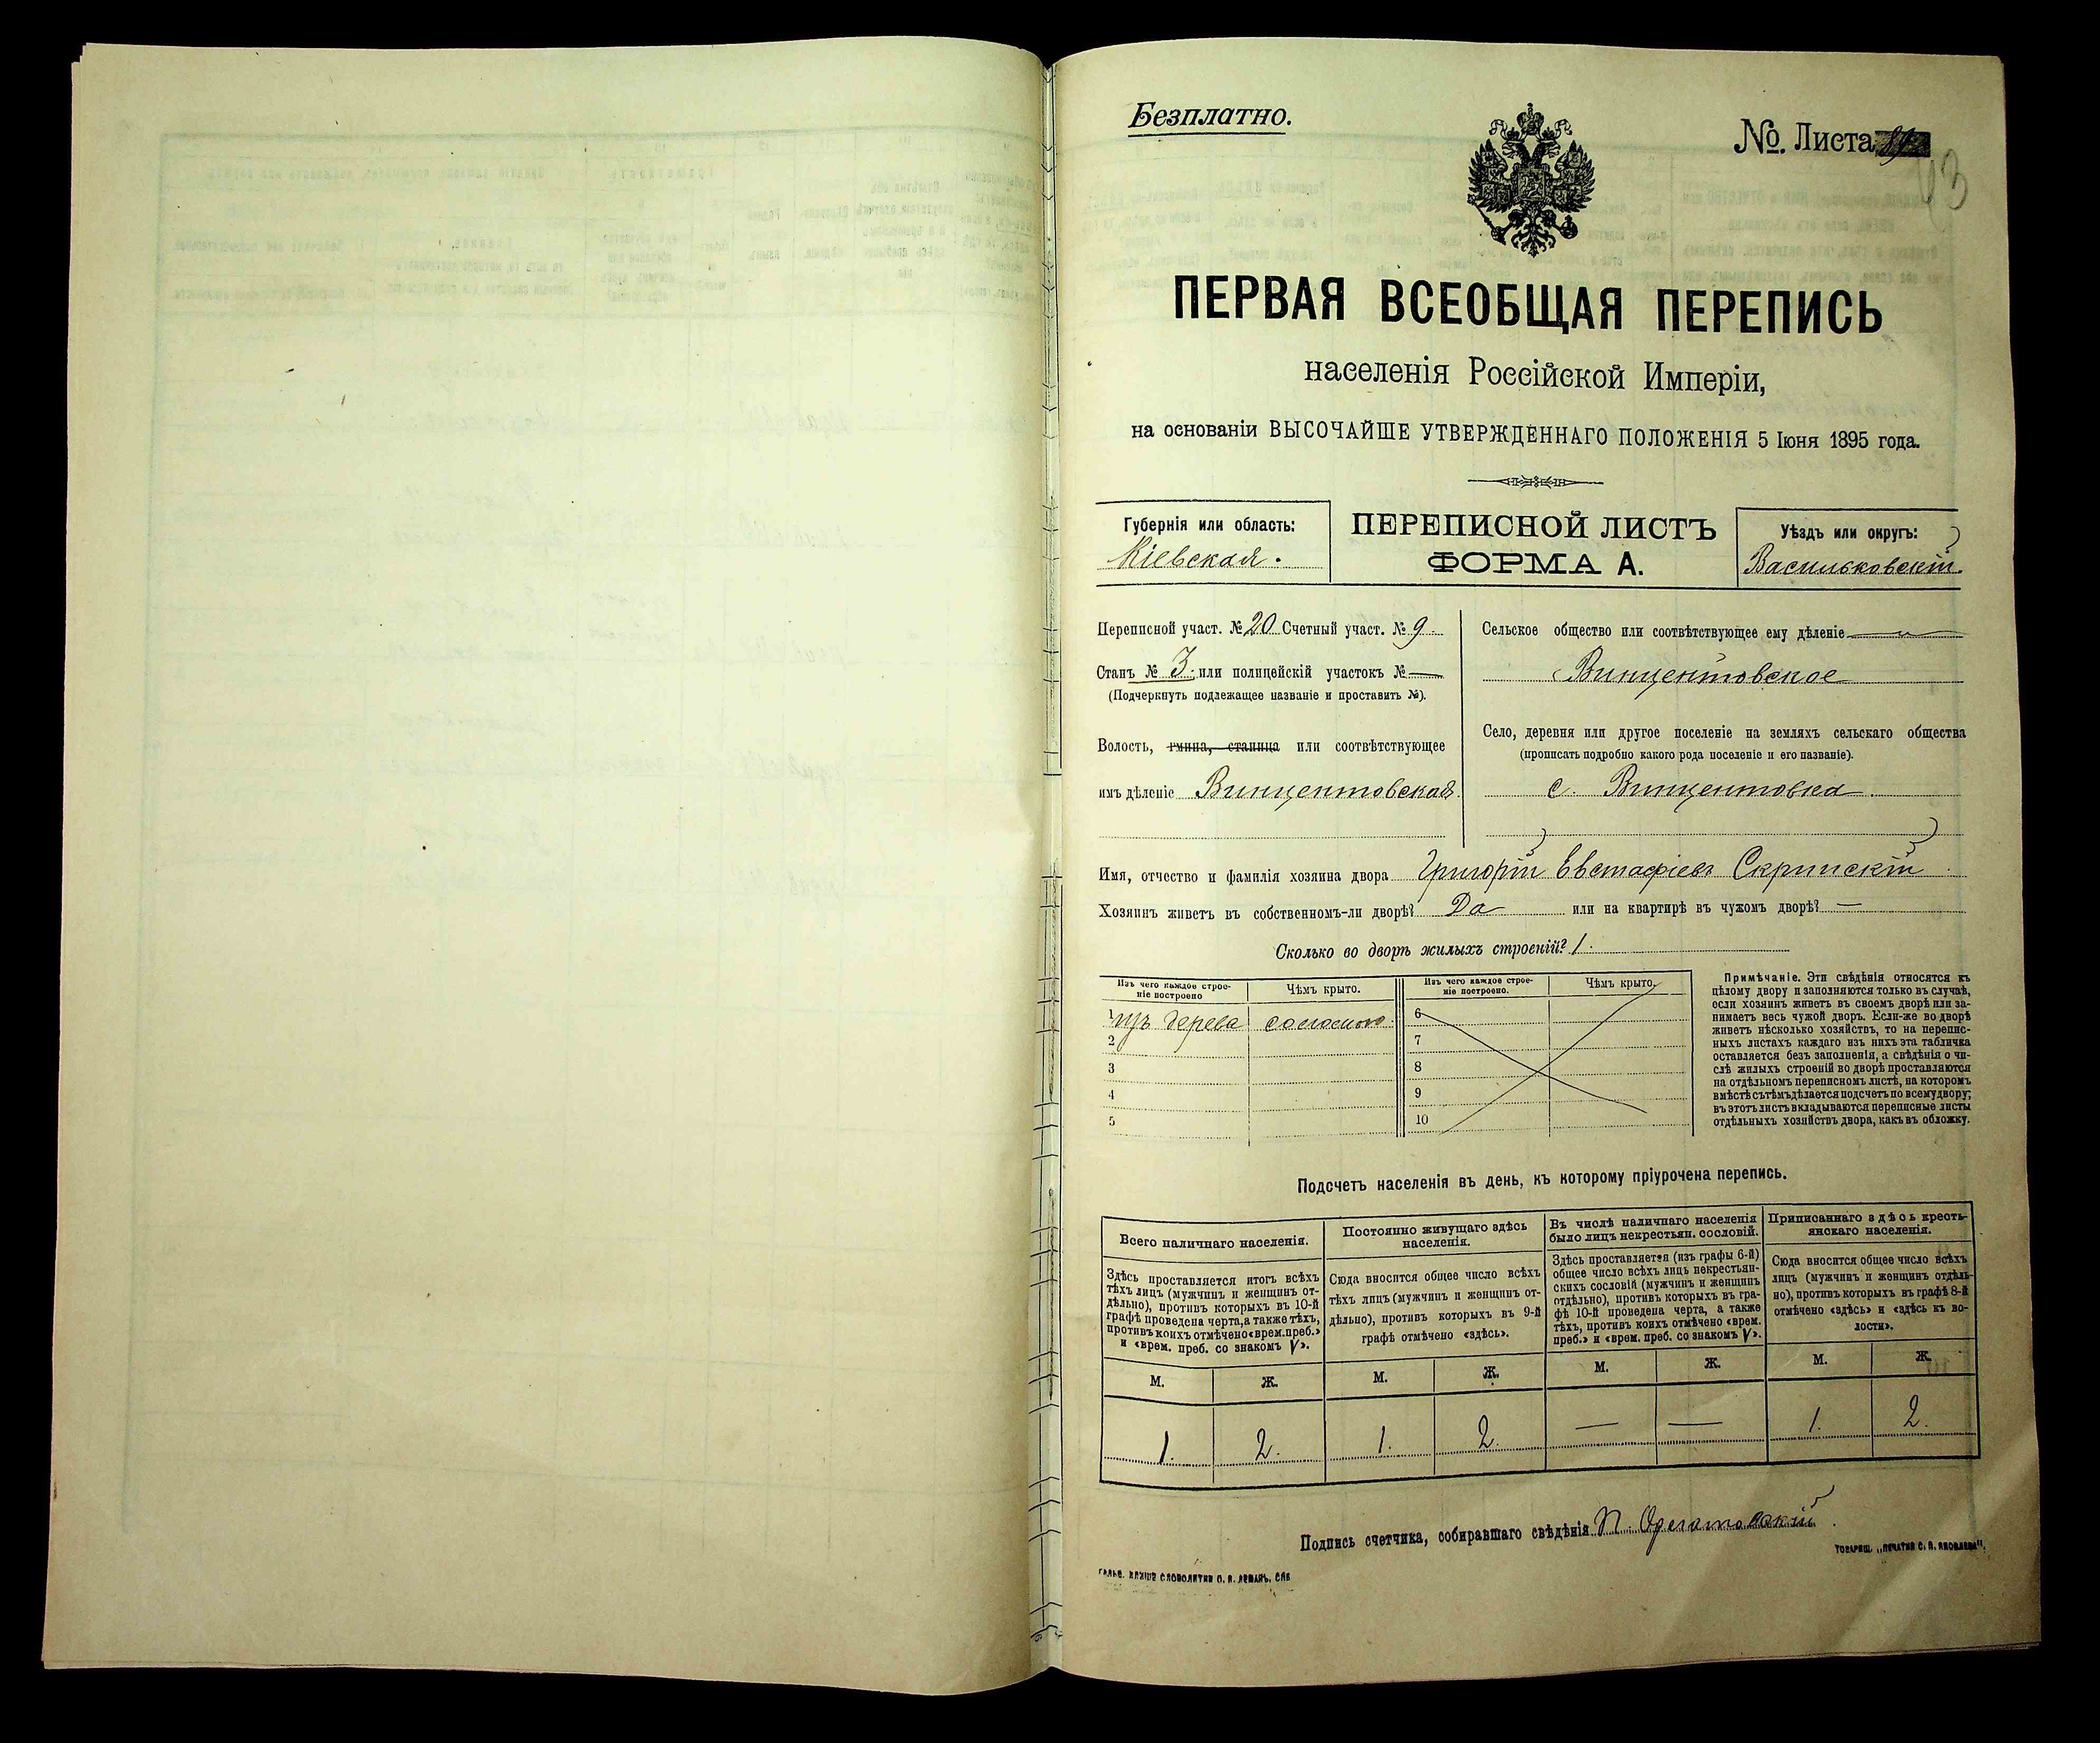 Безплатно.
№. Листа
43
ПЕРВАЯ ВСЕОБЩАЯ ПЕРЕПИСЬ
населенія Россійской Имперіи,
на основаніи ВЫСОЧАЙШЕ УТВЕРЖДЕННАГО ПОЛОЖЕНІЯ 5 Іюня 1895 года.
Губернія или область:
Кіевская.
ПЕРЕПИСНОЙ ЛИСТЪ
ФОРМА А.
Уѣздъ или округъ:
Васильковскій.
Переписной участ. № 20 Счетный участ. № 9.
Станъ № 3. или полицейскій участокъ № —
(Подчеркнуть подлежащее названіе и проставить №).
Волость, гмина, станица или соотвѣтствующее
имъ дѣленіе Винцентовская.
Сельское общество или соотвѣтствующее ему дѣленіе
Винцентовское
Село, деревня или другое поселеніе на земляхъ сельскаго общества
(прописать подробно какого рода поселеніе и его названіе).
с. Винцентовка
Имя, отчество и фамилія хозяина двора Григорій Евстафіевъ Скрипскій
Хозяинъ живетъ въ собственномъ-ли дворѣ? Да или на квартирѣ въ чужомъ дворѣ? —
Сколько во дворѣ жилыхъ строеній? 1.
Изъ чего каждое строе-
ніе построено
Чѣмъ крыто.
1 изъ дерева соломою
2
3
4
5
Изъ чего каждое строе-
ніе построено.
Чѣмъ крыто.
6
7
8
9
10
Примѣчаніе. Эти свѣдѣнія относятся къ
цѣлому двору и заполняются только въ случаѣ,
если хозяинъ живетъ въ своемъ дворѣ или за-
нимаетъ весь чужой дворъ. Если-же во дворѣ
живетъ нѣсколько хозяйствъ, то на перепис-
ныхъ листахъ каждаго изъ нихъ эта табличка
оставляется безъ заполненія, а свѣдѣнія о чи-
слѣ жилыхъ строеній во дворѣ проставляются
на отдѣльномъ переписномъ листѣ, на которомъ
вмѣстѣ съ тѣмъ дѣлается подсчетъ по всему двору;
въ этотъ листъ вкладываются переписные листы
отдѣльныхъ хозяйствъ двора, какъ въ обложку.
Подсчетъ населенія въ день, къ которому пріурочена перепись.
Всего наличнаго населенія.
Здѣсь проставляется итогъ всѣхъ
тѣхъ лицъ (мужчинъ и женщинъ от-
дѣльно), противъ которыхъ въ 10-й
графѣ проведена черта, а также тѣхъ,
противъ коихъ отмѣчено «врем. преб.»
и «врем. преб. со знакомъ V».
М. Ж.
1. 2.
Постоянно живущаго здѣсь
населенія.
Сюда вносится общее число всѣхъ
тѣхъ лицъ (мужчинъ и женщинъ от-
дѣльно), противъ которыхъ въ 9-й
графѣ отмѣчено «здѣсь».
М. Ж.
1. 2.
Въ числѣ наличнаго населенія
было лицъ некрестьян. сословій.
Здѣсь проставляется (изъ графы 6-й)
общее число всѣхъ лицъ некрестьян-
скихъ сословій (мужчинъ и женщинъ
отдѣльно), противъ которыхъ въ гра-
фѣ 10-й проведена черта, а также
тѣхъ, противъ коихъ отмѣчено «врем.
преб.» и «врем. преб. со знакомъ V».
М. Ж.
— —
Приписаннаго здѣсь кресть-
янскаго населенія.
Сюда вносится общее число всѣхъ
лицъ (мужчинъ и женщинъ отдѣль-
но), противъ которыхъ въ графѣ 8-й
отмѣчено «здѣсь» и «здѣсь къ во-
лости».
М. Ж.
1. 2.
Подпись счетчика, собиравшаго свѣдѣнія П.
ТОВАРИЩ. „ПЕЧАТНЯ С. П. ЯКОВЛЕВА“.
СЛОВОЛИТНИ О. И. ЛЕМАНЪ. СПБ